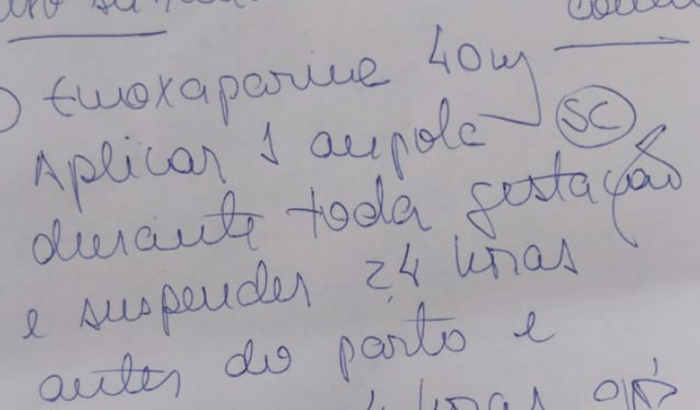 Enoxaparina 40mg
Aplicar 1 ampola SC
durante toda gestação
e suspender 24 horas
antes do parto e
horas após